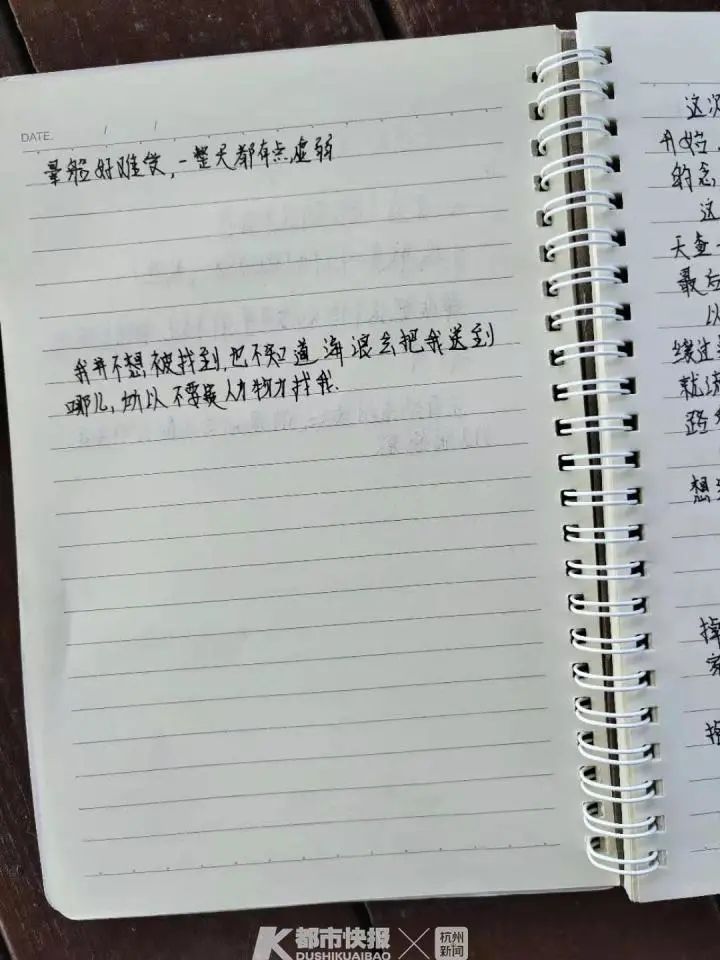 DATE. / /
晕船好难受，一整天都有点虚弱
我并不想被找到，也不知道海浪会把我送到
哪儿，所以不要废人力物力找我.
这次
开始，
的念
这
天查一
最后
以
缘过
就
路
想
掉
家
都市快报
DUSHIKUAIBAO
杭州
新闻